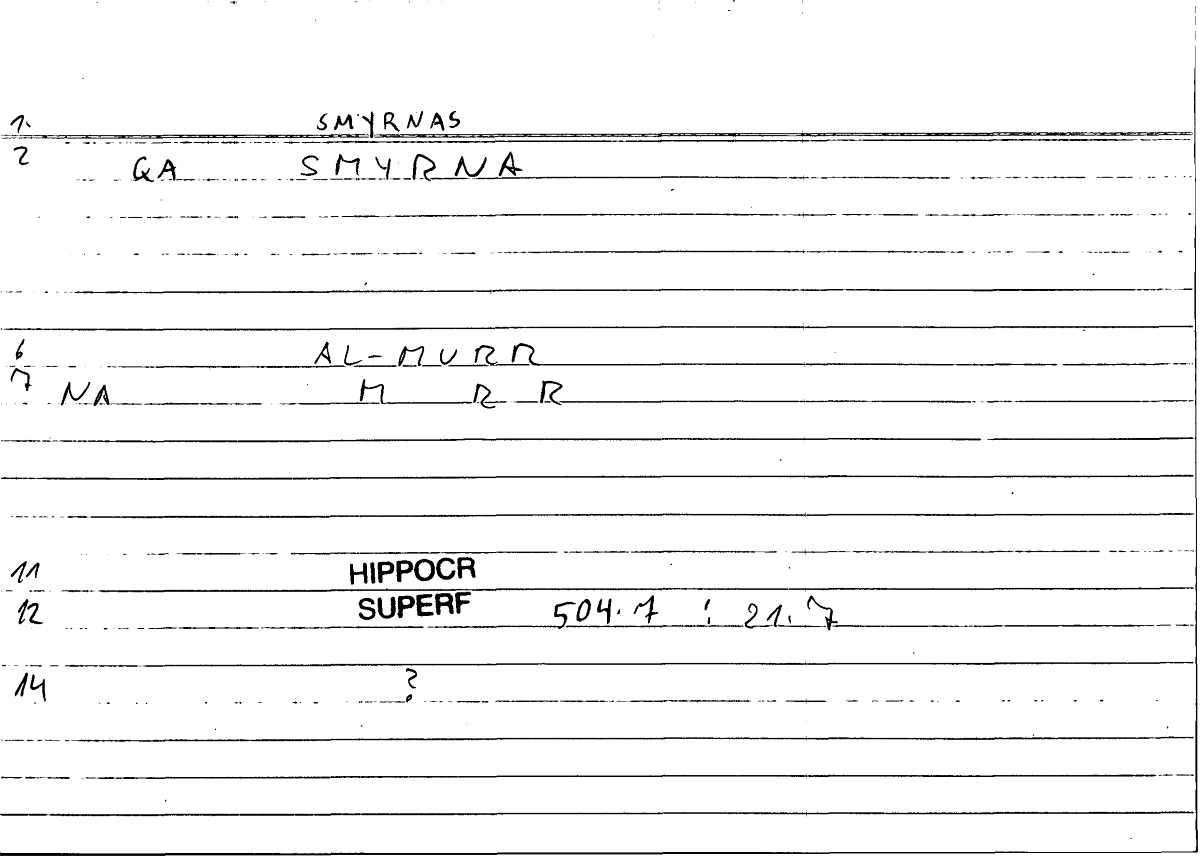 1. SMYRNAS
2 QA SMYRNA
6 AL-MURR
7 NA M R R
11 HIPPOCR
12 SUPERF 504.1 : 21.7
14 ?